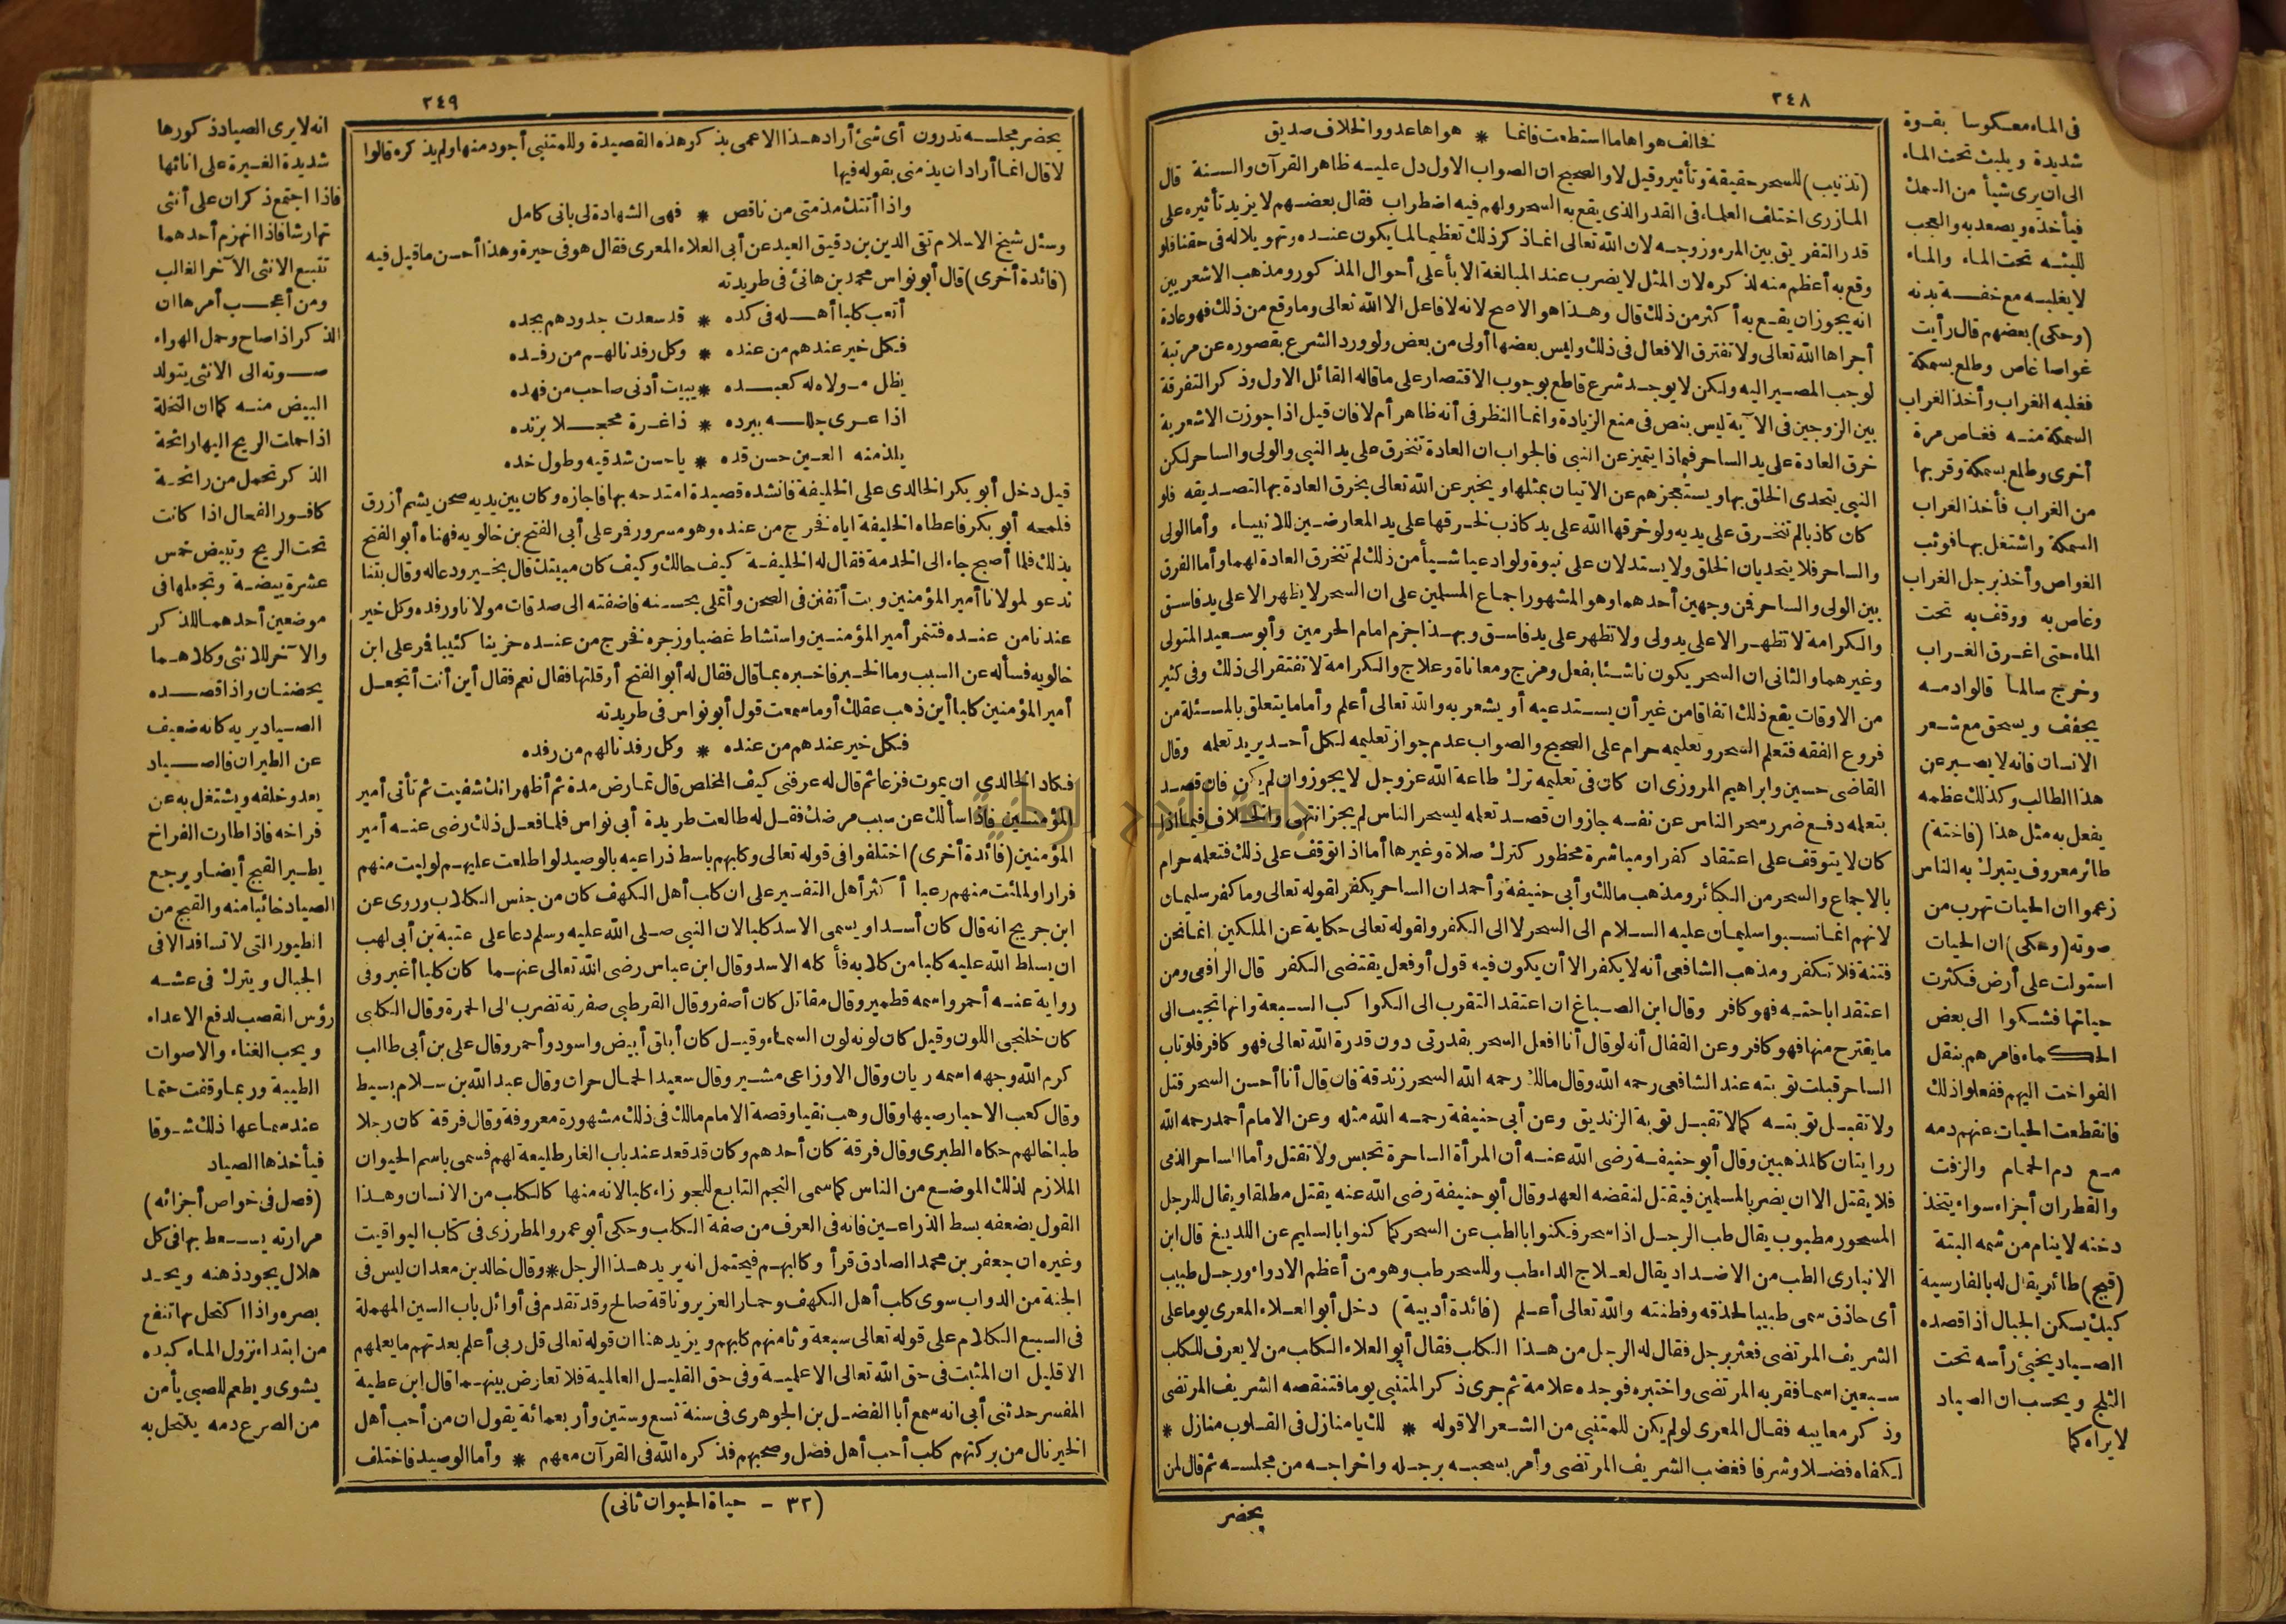 ٢٤٨
فخالف هواها ما استطعت فانما * هواها عدو والخلاف صديق
(تذنيب) للسحر حقيقة وتأثير وقيل لا والصحيح ان الصواب الاول دل عليه ظاهر القرآن والسنة قال
المازرى اختلف العلماء فى القدر الذى يقع به السحر ولهم فيه اضطراب فقال بعضهم لا يزيد تأثيره على
قدر التفريق بين المرء وزوجه لان الله تعالى انما ذكر ذلك تعظيما لما يكون عنده وتهويلا له فى حقنا فلو
وقع به أعظم منه لذكره لان المثل لا يضرب عند المبالغة الا بأعلى أحوال المذكور ومذهب الاشعريين
انه يجوز ان يقع به أكثر من ذلك قال وهذا هو الاصح لانه لا فاعل الا الله تعالى وما وقع من ذلك فهو عادة
أجراها الله تعالى ولا تفترق الافعال فى ذلك وليس بعضها أولى من بعض ولو ورد الشرع بقصوره عن مرتبة
لوجب المصير اليه ولكن لا يوجد شرع قاطع بوجوب الاقتصار على ما قاله القائل الاول وذكر التفرقة
بين الزوجين فى الآية ليس بنص فى منع الزيادة وانما النظر فى أنه ظاهر أم لا فان قيل اذا جوزت الاشعرية
خرق العادة على يد الساحر فبماذا يتميز عن النبى فالجواب ان العادة تنخرق على يد النبى والولى والساحر لكن
النبى يتحدى الخلق بها ويستعجزهم عن الاتيان بمثلها ويخبر عن الله تعالى بخرق العادة بها لتصديقه فلو
كان كاذبا لم تنخرق على يديه ولو خرقها الله على يد كاذب لخرقها على يد المعارضين للانبياء وأما الولى
والساحر فلا يتحديان الخلق ولا يستدلان على نبوة ولو ادعيا شيأ من ذلك لم تنخرق العادة لهما وأما الفرق
بين الولى والساحر فمن وجهين أحدهما وهو المشهور اجماع المسلمين على ان السحر لا يظهر الا على يد فاسق
والكرامة لا تظهر الا على يد ولى ولا تظهر على يد فاسق وبهذا جزم امام الحرمين وأبو سعيد المتولى
وغيرهما والثانى ان السحر يكون ناشئا بفعل ومزج ومعاناة وعلاج والكرامة لا تفتقر الى ذلك وفى كثير
من الاوقات يقع ذلك اتفاقا من غير أن يستدعيه أو يشعر به والله تعالى أعلم وأما ما يتعلق بالمسئلة من
فروع الفقه فتعلم السحر وتعليمه حرام على الصحيح والصواب عدم جواز تعليمه لكل أحد يريد تعلمه وقال
القاضى حسين وابراهيم المروزى ان كان فى تعليمه ترك طاعة الله عز وجل لا يجوز وان لم يكن فان قصد
بتعلمه دفع ضرر سحر الناس عن نفسه جاز وان قصد تعلمه ليسحر الناس لم يجز انتهى والخلاف فيما اذا
كان لا يتوقف على اعتقاد كفر او مباشرة محظور كترك صلاة وغيرها أما اذا توقف على ذلك فتعلمه حرام
بالاجماع والسحر من الكبائر ومذهب مالك وأبى حنيفة وأحمد ان الساحر يكفر لقوله تعالى وما كفر سليمان
لانهم انما نسبوا سليمان عليه السلام الى السحر لا الى الكفر ولقوله تعالى حكاية عن الملكين انما نحن
فتنة فلا تكفر ومذهب الشافعى أنه لا يكفر الا أن يكون فيه قول أو فعل يقتضى الكفر قال الرافعى ومن
اعتقد اباحته فهو كافر وقال ابن الصباغ ان اعتقد التقرب الى الكواكب السبعة وانها تجيب الى
ما يقترح منها فهو كافر وعن القفال أنه لو قال أنا افعل السحر بقدرتى دون قدرة الله تعالى فهو كافر فلو تاب
الساحر قبلت توبته عند الشافعى رحمه الله وقال مالك رحمه الله السحر زندقة فان قال أنا أحسن السحر قتل
ولا تقبل توبته كما لا تقبل توبة الزنديق وعن أبى حنيفة رحمه الله مثله وعن الامام أحمد رحمه الله
روايتان كالمذهبين وقال أبو حنيفة رضى الله عنه أن المرأة الساحرة تحبس ولا تقتل وأما الساحر الذمى
فلا يقتل الا ان يضر بالمسلمين فيقتل لنقضه العهد وقال أبو حنيفة رضى الله عنه يقتل مطلقا ويقال للرجل
المسحور مطبوب يقال طب الرجل اذا سحر فكنوا بالطب عن السحر كما كنوا بالسليم عن اللديغ قال ابن
الانبارى الطب من الاضداد يقال لعلاج الداء طب وللسحر طب وهو من أعظم الادواء ورجل طبيب
أى حاذق سمى طبيبا لحذقه وفطنته والله تعالى أعلم (فائدة أدبية) دخل أبو العلاء المعرى يوما على
الشريف المرتضى فعثر برجل فقال له الرجل من هذا الكلب فقال أبو العلاء الكلب من لا يعرف للكلب
سبعين اسما فقربه المرتضى واختبره فوجده علامة ثم جرى ذكر المتنبى يوما فتنقصه الشريف المرتضى
وذكر معايبه فقال المعرى لو لم يكن للمتنبى من الشعر الا قوله * لك يا منازل فى القلوب منازل *
لكفاه فضلا وشرفا فغضب الشريف المرتضى وأمر بسحبه برجله واخراجه من مجلسه ثم قال لمن
بحضر
فى الماء معكوسا بقوة
شديدة ويلبث تحت الماء
الى ان يرى شيأ من السمك
فيأخذه ويصعد به والعجب
للبثه تحت الماء والماء
لا يغلبه مع خفة بدنه
(وحكى) بعضهم قال رأيت
غواصا غاص وطلع بسمكة
فغلبه الغراب وأخذ الغراب
السمكة منه فغاص مرة
أخرى وطلع بسمكة وقربها
من الغراب فأخذ الغراب
السمكة واشتغل بها فوثب
الغواص وأخذ برجل الغراب
وغاص به ووقف به تحت
الماء حتى اغرق الغراب
وخرج سالما قالوا دمه
يجفف ويسحق مع شعر
الانسان فانه لا يصبر عن
هذا الطالب وكذلك عظمه
يفعل به مثل هذا (فاختة)
طائر معروف يتبرك به الناس
زعموا ان الحيات تهرب من
صوته (وحكى) ان الحيات
استولت على أرض فكثرت
حياتها فشكوا الى بعض
الحكماء فامرهم بنقل
الفواخت اليهم ففعلوا ذلك
فانقطعت الحيات عنهم دمه
مع دم الحمام والزفت
والقطران أجزاء سواء يتخذ
دخنه لا ينام من شمه البتة
(قبج) طائر يقال له بالفارسية
كبك يسكن الجبال اذا قصده
الصياد يخبئ رأسه تحت
الثلج ويحسب ان الصياد
لا يراه كما
٢٤٩
بحضر مجلسه تدرون أى شئ أراد هذا الاعمى بذكر هذه القصيدة وللمتنبى أجود منها ولم يذكره قالوا
لا قال انما أراد ان يذمنى بقوله فيها
واذا أتتك مذمتى من ناقص * فهى الشهادة لى بانى كامل
وسئل شيخ الاسلام تقى الدين بن دقيق العيد عن أبى العلاء المعرى فقال هو فى حيرة وهذا أحسن ما قيل فيه
(فائدة أخرى) قال أبو نواس محمد بن هانئ فى طريدته
أتعب كلبا أهله فى كده * قد سعدت جدودهم بجده
فكل خير عندهم من عنده * وكل رفد نالهم من رفده
يظل مولاه له كعبده * يبيت أدنى صاحب من مهده
اذا عرى جلله ببرده * ذا غرة محجلا بزنده
يلذ منه العين حسن قده * يا حسن شدقيه وطول خده
قيل دخل أبو بكر الخالدى على الخليفة فانشده قصيدة امتدحه بها فاجازه وكان بين يديه صحن يشم أزرق
فلمحه أبو بكر فاعطاه الخليفة اياه فخرج من عنده وهو مسرور فمر على أبى الفتح بن خالويه فهناه أبو الفتح
بذلك فلما أصبح جاء الى الخدمة فقال له الخليفة كيف حالك وكيف كان مبيتك قال بخير ودعا له وقال بتنا
ندعو لمولانا أمير المؤمنين وبت أتفنن فى الصحن وأتملى بحسنه فاضفته الى صدقات مولانا ورفده وكل خير
عندنا من عنده فتنمر أمير المؤمنين واستشاط غضبا وزجره فخرج من عنده حزينا كئيبا فمر على ابن
خالويه فسأله عن السبب وما الخبر فاخبره بما قال فقال له أبو الفتح أو قلتها فقال نعم فقال أين أنت أتجعل
أمير المؤمنين كلبا أين ذهب عقلك أو ما سمعت قول أبو نواس فى طريدته
فكل خير عندهم من عنده * وكل رفد نالهم من رفده
فكاد الخالدى ان يموت فزعا ثم قال له عرفنى كيف المخلص قال تمارض مدة ثم أظهر انك شفيت ثم تأتى أمير
المؤمنين فاذا سألك عن سبب مرضك فقل له طالعت طريدة أبى نواس فلما فعل ذلك رضى عنه أمير
المؤمنين (فائدة أخرى) اختلفوا فى قوله تعالى وكلبهم باسط ذراعيه بالوصيد لو اطلعت عليهم لوليت منهم
فرارا ولملئت منهم رعبا أكثر أهل التفسير على ان كلب أهل الكهف كان من جنس الكلاب وروى عن
ابن جريج انه قال كان أسدا ويسمى الاسد كلبا لان النبى صلى الله عليه وسلم دعا على عتبة بن أبى لهب
ان يسلط الله عليه كلبا من كلابه فأكله الاسد وقال ابن عباس رضى الله تعالى عنهما كان كلبا أغبر وفى
رواية عنه أحمر واسمه قطمير وقال مقاتل كان أصفر وقال القرطبى صفرته تضرب الى الحمرة وقال الكلبى
كان خلنجى اللون وقيل كان لونه لون السماء وقيل كان أبلق أبيض واسود وأحمر وقال على بن أبى طالب
كرم الله وجهه اسمه ريان وقال الاوزاعى مشير وقال سعيد الحمال حران وقال عبد الله بن سلام بسيط
وقال كعب الاحبار صهبا وقال وهب نقيا وقصة الامام مالك فى ذلك مشهورة معروفة وقال فرقة كان رجلا
طباخا لهم حكاه الطبرى وقال فرقة كان أحدهم وكان قد قعد عند باب الغار طليعة لهم فسمى باسم الحيوان
الملازم لذلك الموضع من الناس كما سمى النجم التابع للجوزاء كلبا لانه منها كالكلب من الانسان وهذا
القول يضعفه بسط الذراعين فانه فى العرف من صفة الكلب وحكى أبو عمرو المطرزى فى كتاب اليواقيت
وغيره ان جعفر بن محمد الصادق قرأ وكالبهم فيحتمل انه يريد هذا الرجل * وقال خالد بن معدان ليس فى
الجنة من الدواب سوى كلب أهل الكهف وحمار العزير وناقة صالح وقد تقدم فى أوائل باب السين المهملة
فى السبع الكلام على قوله تعالى سبعة وثامنهم كلبهم ويزيد هنا ان قوله تعالى قل ربى أعلم بعدتهم ما يعلمهم
الا قليل ان المثبت فى حق الله تعالى الاعلمية وفى حق القليل العالمية فلا تعارض بينهما قال ابن عطية
المفسر حدثنى أبى انه سمع أبا الفضل بن الجوهرى فى سنة تسع وستين وأربعمائة يقول ان من أحب أهل
الخير نال من بركتهم كلب أحب أهل فضل وصحبهم فذكره الله فى القرآن معهم * وأما الوصيد فاختلف
(٣٢ - حياة الحيوان ثانى)
انه لا يرى الصياد ذكورها
شديدة الغيرة على اناثها
فاذا اجتمع ذكران على أنثى
تهارشا فاذا انهزم أحدهما
تتبع الانثى الآخر الغالب
ومن أعجب أمرها ان
الذكر اذا صاح وحمل الهواء
صوته الى الانثى يتولد
البيض منه كما ان النخلة
اذا حملت الريح اليها رائحة
الذكر تحمل من رائحة
كافور الفحال اذا كانت
تحت الريح وتبيض خمس
عشرة بيضة وتجعلها فى
موضعين أحدهما للذكر
والآخر للانثى وكلاهما
يحضنان واذا قصده
الصياد يريه كانه ضعيف
عن الطيران فالصياد
يعدو خلفه ويشتغل به عن
فراخه فاذا طارت الفراخ
يطير القبج أيضا ويرجع
الصياد خائبا منه والقبج من
الطيور التى لا تسافد الا فى
الجبال ويترك فى عشه
رؤس القصب لدفع الاعداء
ويحب الغناء والاصوات
الطيبة وربما وقفت حتما
عند سماعها ذلك شوقا
فيأخذها الصياد
(فصل فى خواص أجزائه)
مرارته يسعط بها فى كل
هلال يجود ذهنه ويحد
بصره واذا اكتحل بها تنفع
من ابتداء نزول الماء كبده
يشوى ويطعم للصبى يأمن
من الصرع دمه يكتحل به